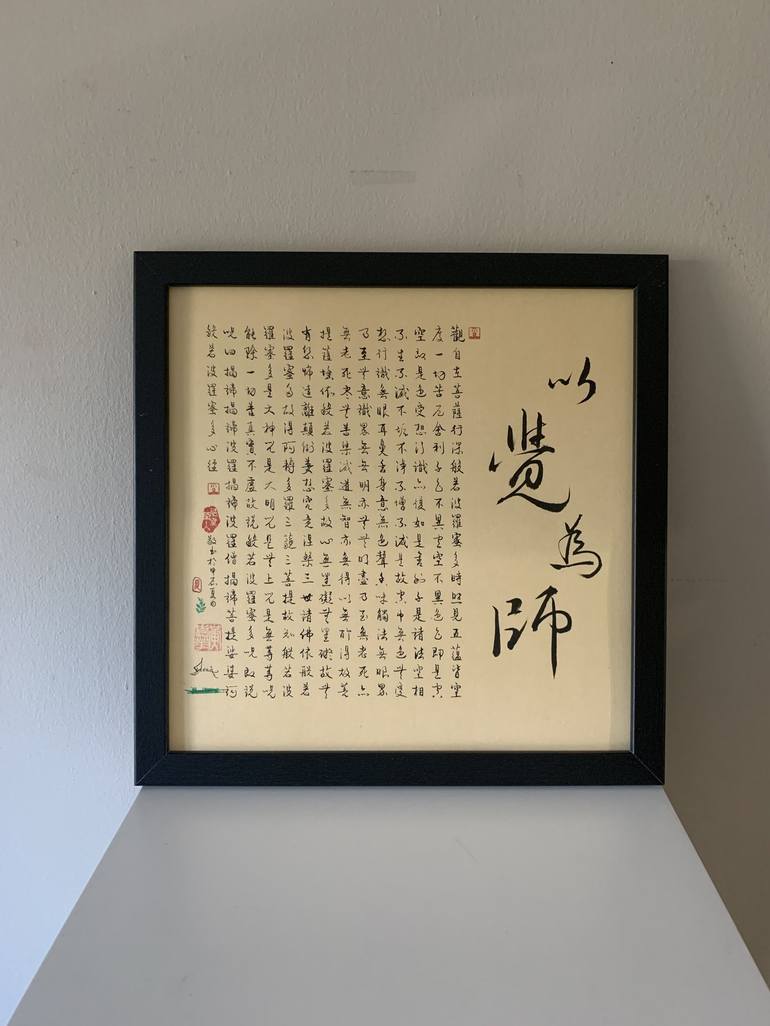 以覺為師
觀自在菩薩行深般若波羅蜜多時照見五蘊皆空
度一切苦厄舍利子色不異空空不異色色即是空
空即是色受想行識亦復如是舍利子是諸法空相
不生不滅不垢不淨不增不減是故空中無色無受
想行識無眼耳鼻舌身意無色聲香味觸法無眼界
乃至無意識界無無明亦無無明盡乃至無老死亦
無老死盡無苦集滅道無智亦無得以無所得故菩
提薩埵依般若波羅蜜多故心無罣礙無罣礙故無
有恐怖遠離顛倒夢想究竟涅槃三世諸佛依般若
波羅蜜多故得阿耨多羅三藐三菩提故知般若波
羅蜜多是大神咒是大明咒是無上咒是無等等咒
能除一切苦真實不虛故說般若波羅蜜多咒即說
咒曰揭諦揭諦波羅揭諦波羅僧揭諦菩提娑婆訶
般若波羅蜜多心經
敬書於甲辰夏日